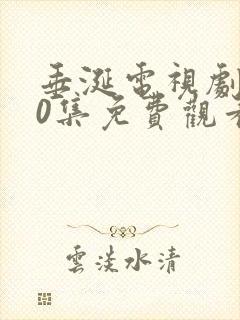 垂涎電視劇
0集免費觀看
雲淡水清